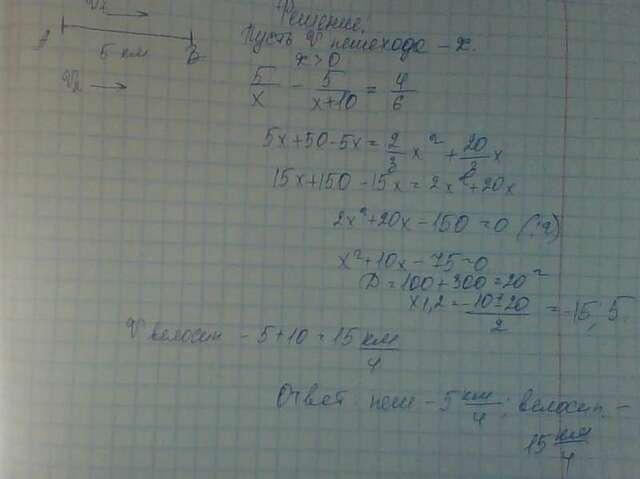 Решение.
Пусть V пешехода - x.
x > 0
A 5 км B
5/x - 5/(x+10) = 4/6
5x+50-5x = 2/3 x² + 20/3 x
15x+150-15x = 2x²+20x
2x²+20x-150=0 (:2)
x²+10x-75=0
D=100+300=20²
x1,2 = (-10±20)/2 = -15; 5.
V велосип - 5+10 = 15 км/ч
Ответ: пеш - 5 км/ч; велосип. -
15 км/ч